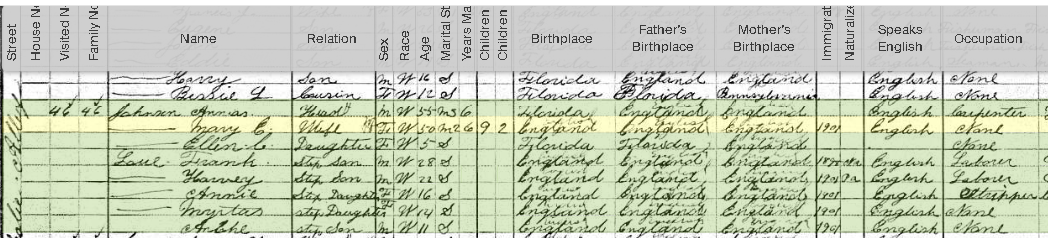 Street House No Visited No Family No Name Relation Sex Race Age Marital St Years Ma Children Children Birthplace Father's Birthplace Mother's Birthplace Immigrat Naturalize Speaks English Occupation
Harry Son M W 16 S Florida England England English None
Bessie L Cousin F W 12 S Florida Florida Pennsylvania English None
46 46 Johnson Head M W 55 M3 6 Florida England England English Carpenter
Mary E. Wife F W 50 M2 6 9 2 England England England 1901 English None
Ellen C. Daughter F W 5 S Florida Florida England None
Frank Step Son M W 28 S England England England English Laborer
Harvey Step Son M W 22 S England England England Na English Laborer
Annie Step Daughter F W 16 S England England England 1901 English Stripper
Step Daughter F W 14 S England England England 1901 English None
Step Son M W 11 S England England England 1901 English None